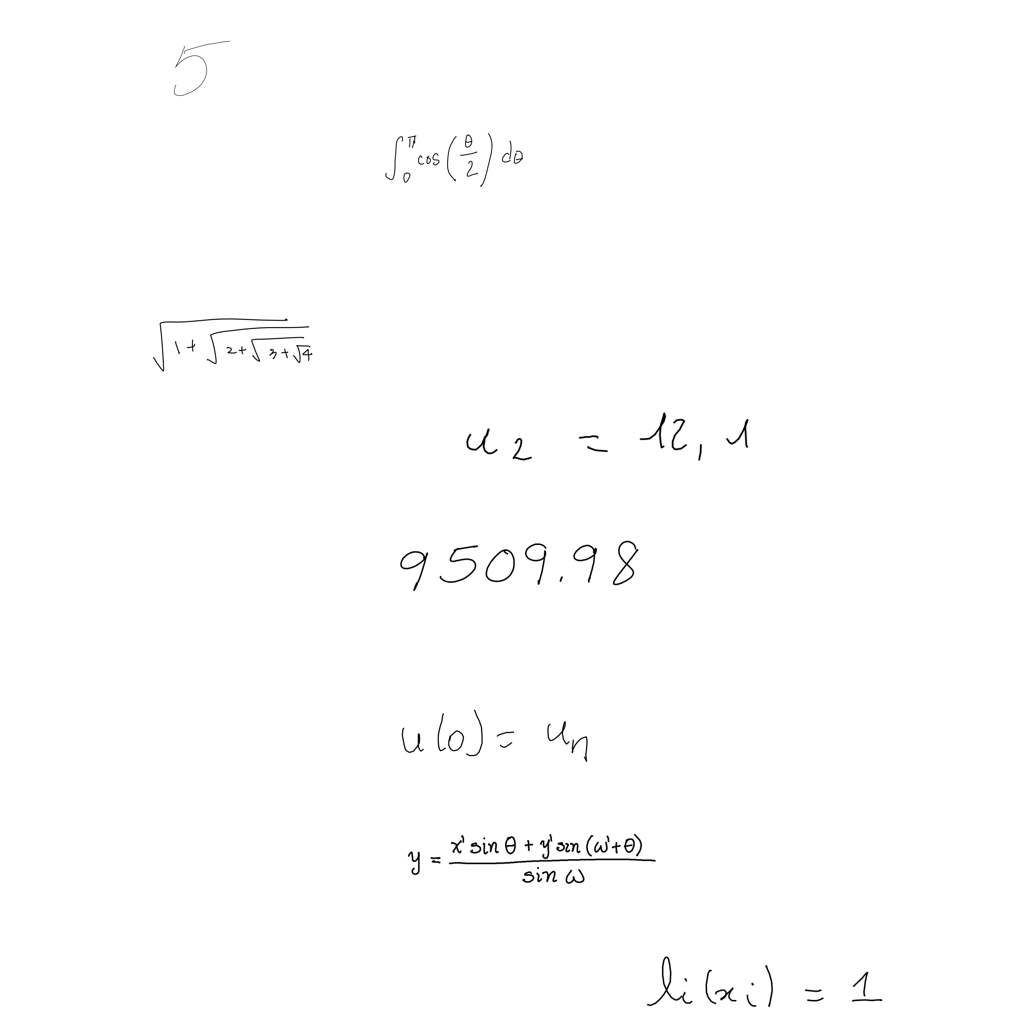 5
\int_0^\pi \cos\left(\frac{\theta}{2}\right) d\theta
\sqrt{1+\sqrt{2+\sqrt{3+\sqrt{4}}}}
u_2 = 12,1
9509.98
u(0) = u_n
y = \frac{x' \sin \theta + y' \sin(\omega' + \theta)}{\sin \omega}
l_i(x_i) = 1